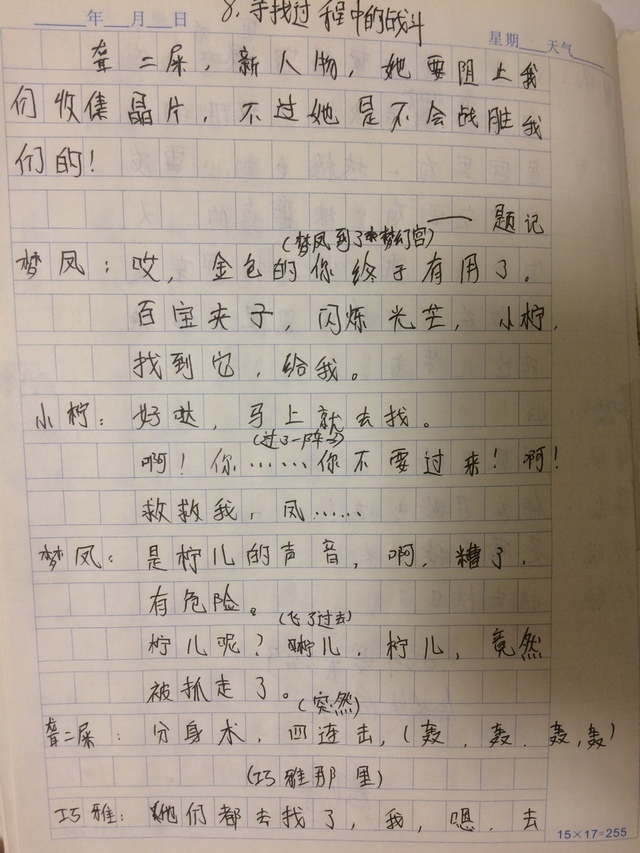 8、寻找过程中的战斗
年 月 日
星期 天气
聋二屎，新人物，她要阻止我
们收集晶片，不过她是不会战胜我
们的！
——题记
(梦凤到了梦幻宫)
梦凤：哎，金包的你终于有用了。
百宝夹子，闪烁光芒，小柠，
找到它，给我。
小柠：好哒，马上就去找。
(过了一阵子)
啊！你……你不要过来！啊！
救救我，凤……
梦凤：是柠儿的声音，啊，糟了，
有危险。
(飞了过去)
柠儿呢？柠儿，柠儿，竟然
被抓走了。
(突然)
聋二屎：分身术，四连击，(轰、轰、轰、轰)
(巧雅那里)
巧雅：她们都去找了，我，嗯，去
15×17=255